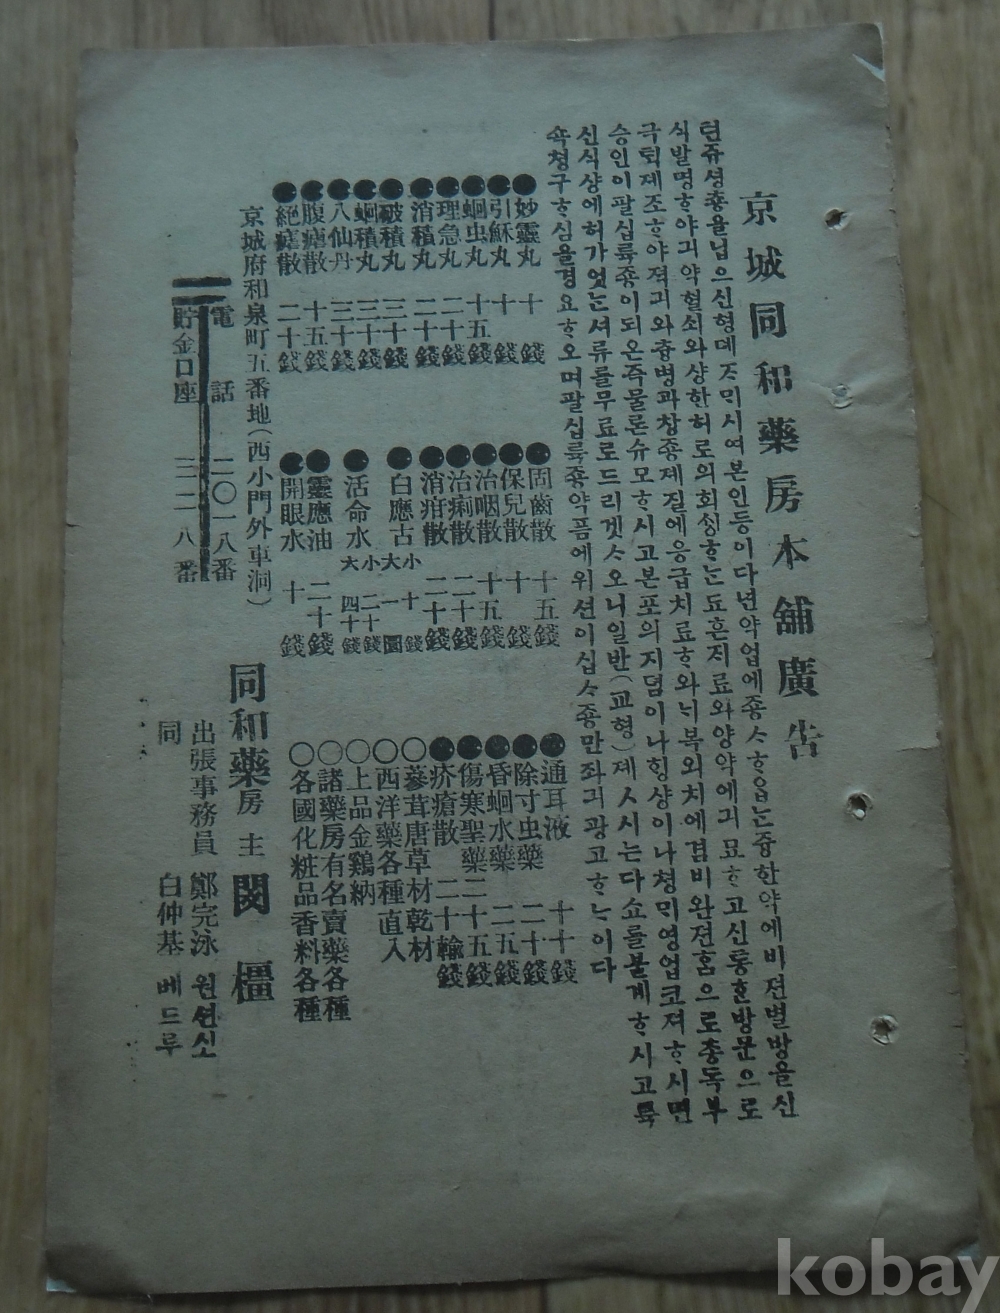 京城同和藥房本舖廣告
텬쥬셩춍을닙으신형뎨ᄌᆞᄆᆡ시여본인등이다년약업에죵ᄉᆞᄒᆞᄋᆞᆸ는즁한약에비젼별방을신
식발명ᄒᆞ야긔약혈쇠와샹한허로의회ᄉᆡᆼᄒᆞ는됴흔ᄌᆡ료와양약에긔묘ᄒᆞ고신통ᄒᆞᆫ방문으로
극퇴졔조ᄒᆞ야젹긔와흉병과창죵졔질에응급치료ᄒᆞ와ᄂᆡ복외치에겸비완젼홈으로춍독부
승인이팔십륙죵이되온즉물론슈모ᄒᆞ시고본포의지뎜이나ᄒᆡᆼ샹이나쳥ᄆᆡ영업코져ᄒᆞ시면
신식샹에허가엇는셔류를무료로드리겟ᄉᆞ오니일반(교형)졔ᄉᆞ시는다쇼를불계ᄒᆞ시고륙
쇽쳥구ᄒᆞ심을경요ᄒᆞ오며팔십륙죵약픔에위션이십ᄉᆞ죵만좌긔광고ᄒᆞᄂᆞ이다
●妙靈丸 十錢
●引穌丸 十錢
●蛔虫丸 十五錢
●理急丸 二十錢
●消積丸 二十錢
●破積丸 三十錢
●蛔積丸 三十錢
●八仙丹 三十錢
●腹瘧散 十五錢
●絕瘧散 二十錢
●固齒散 十五錢
●保兒散 十錢
●治咽散 十五錢
●治痢散 二十錢
●消疳散 二十錢
●白應古 小 十錢 大 一圜
●活命水 小 二十錢 大 四十錢
●靈應油 二十錢
●開眼水 十錢
●通耳液 十錢
●除寸虫藥 二十錢
●昏蛔水藥 二五錢
●傷寒聖藥 二十五錢
●疥瘡散 二十錢
○蔘茸唐草材乾材
○西洋藥各種直入
○上品金鷄納
○諸藥房有名賣藥各種
○各國化粧品香料各種
京城府和泉町五番地(西小門外車洞)
電話 二〇一八番
貯金口座 三二八番
同和藥房主 閔橿
出張事務員 鄭完泳 원션시오
同 白仲基 베드루